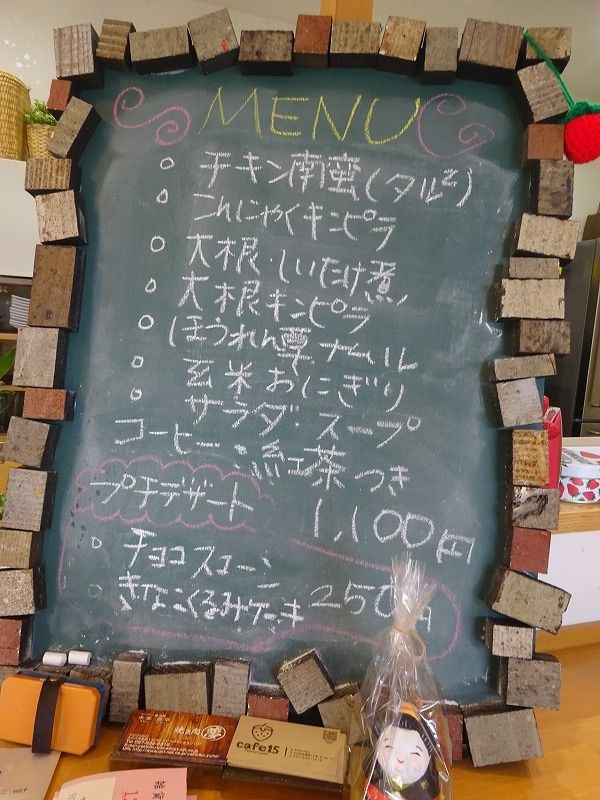 MENU
○ チキン南蛮(タルタル)
○ こんにゃくキンピラ
○ 大根・しいたけ煮
○ 大根キンピラ
○ ほうれん草ナムル
○ 玄米おにぎり
○ サラダ・スープ
コーヒー・紅茶つき
プチデザート 1,100円
○ チョコスコーン
○ きなこくるみケーキ 250円
焼き肉
cafe15